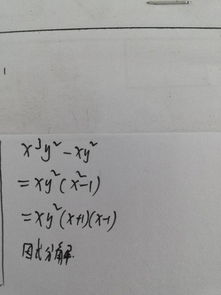 x³y²-xy²
=xy²(x²-1)
=xy²(x+1)(x-1)
因式分解.